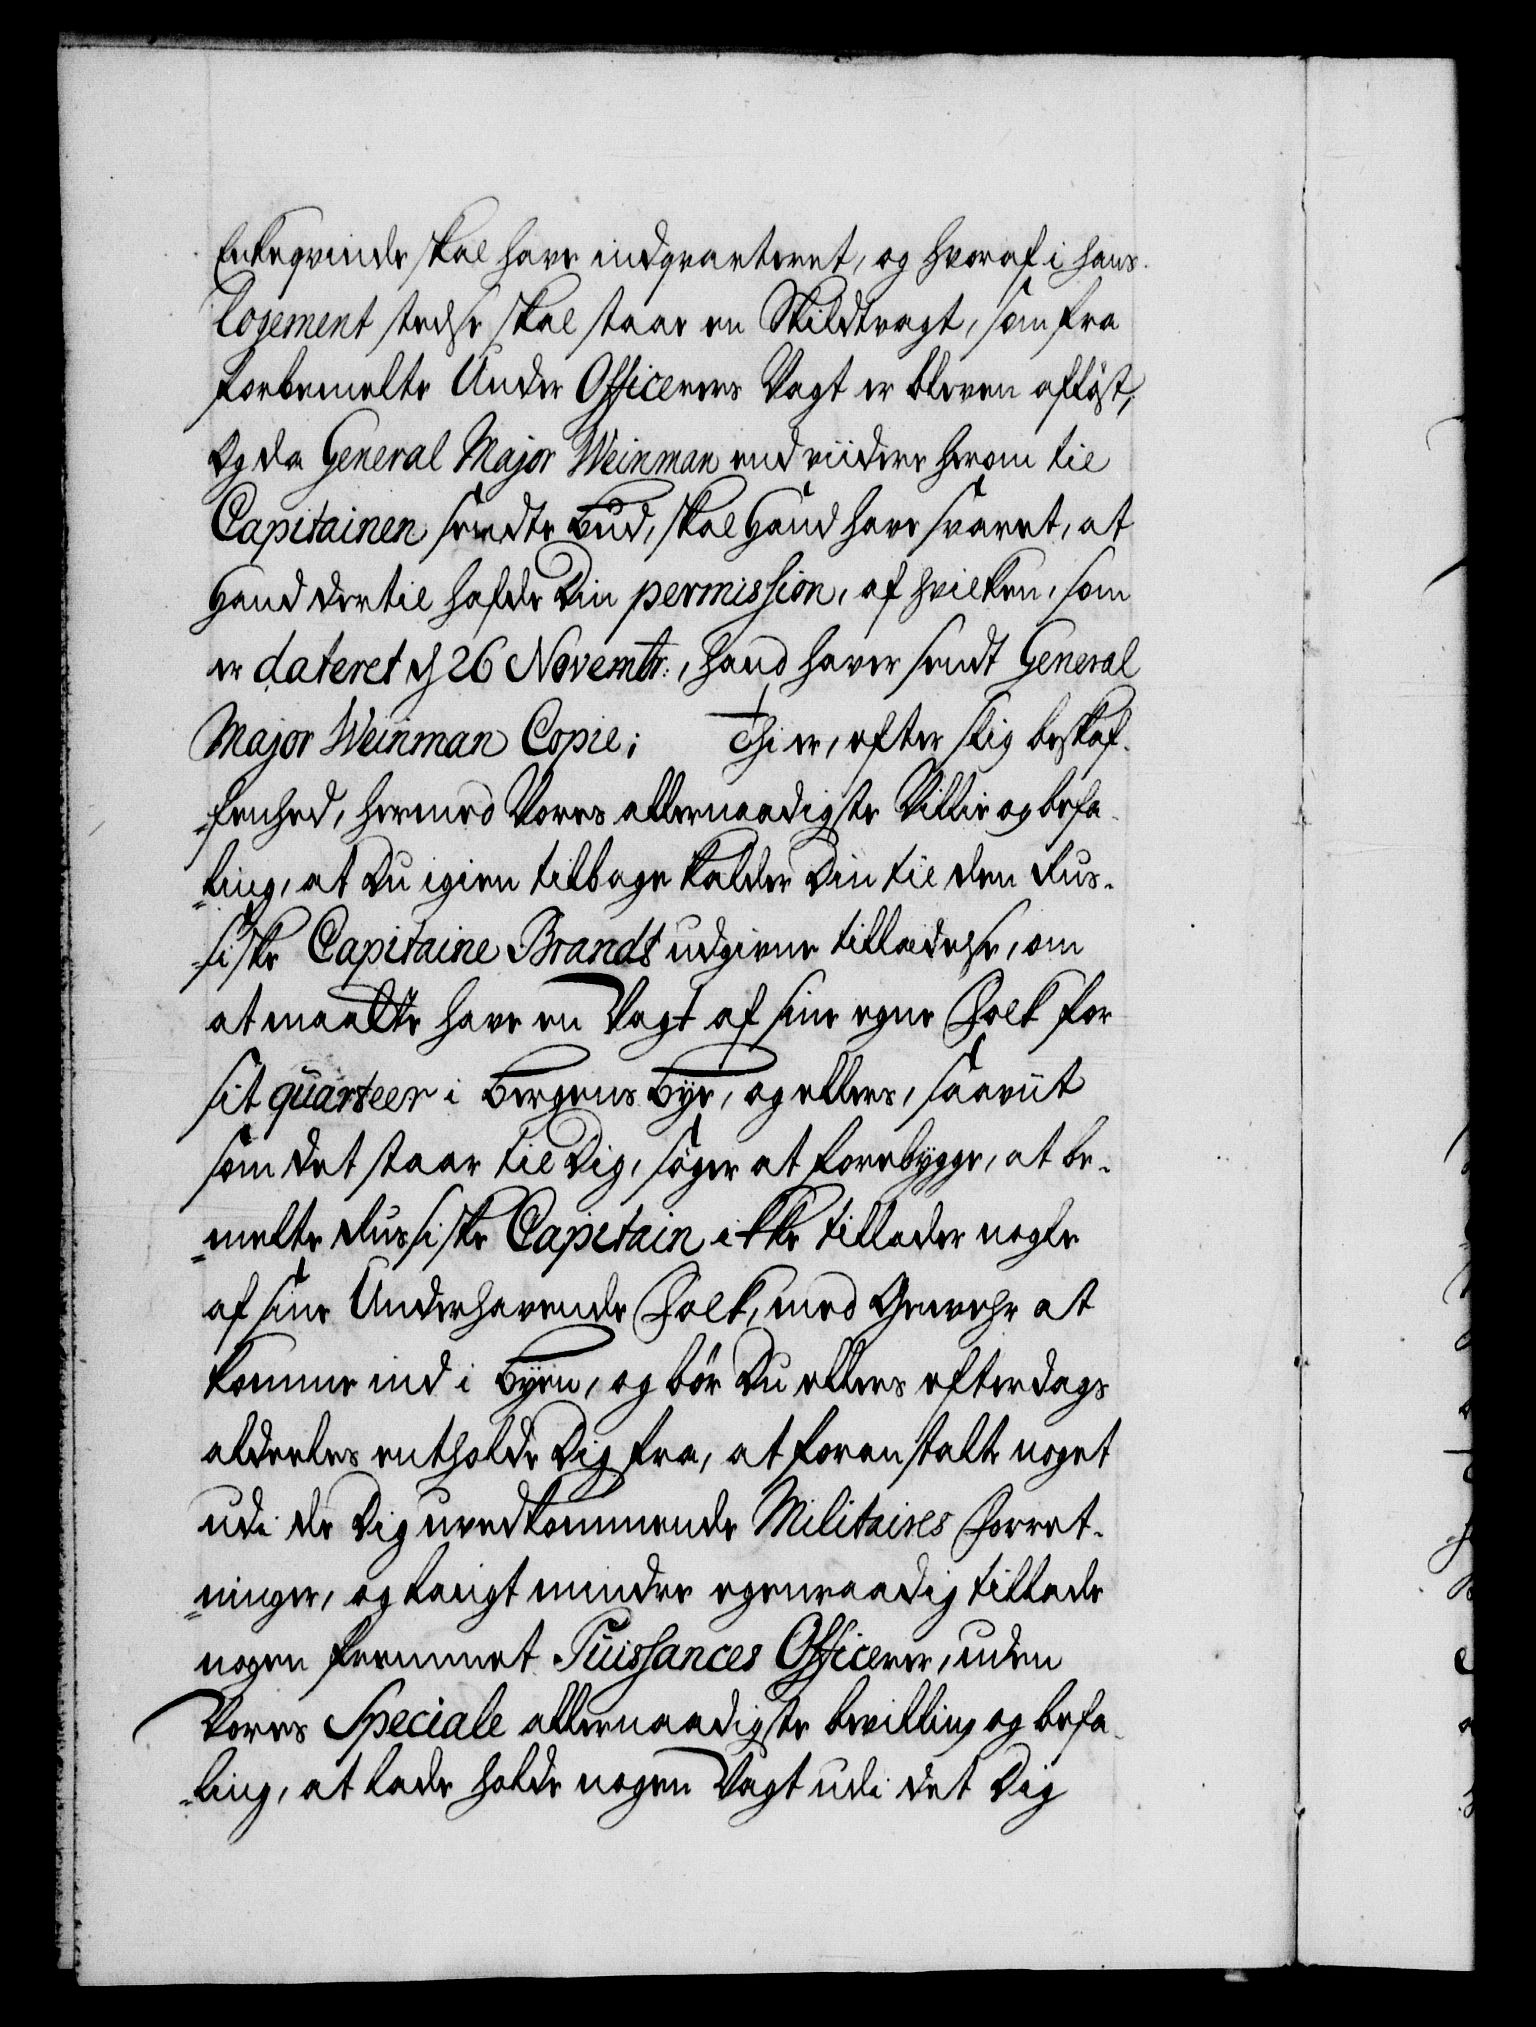 Enkeqvinde skal have indqvarteret, og hvoraf i hans
logement stedse skal staae en Skildtvagt, som fra
forbemelte Under Officerers Vagt er bleven aflöst,
Og da General Major Weinman end viidere herom til
Capitainen sendte bud, skal Hand have svaret, at
Hand dertil hafde Din permission, af hvilken, som
er dateret d 26 Novembr:, Hand haver sendt General
Major Weinman Copie; Thi er, efter slig beskaf-
-fenhed, hermed Vores allernaadigste Villie og befa-
-ling, at Du igien tilbage kalder Din til den Rus-
-siske Capitaine Brandt udgivne tilladelse, om
at maatte have en Vagt af sine egne Folk for
sit quarteer i Bergens Bye, og ellers, saaviit
som det staar til Dig, söger at forebygge, at be-
-melte Russiske Capitain ikke tillader nogle
af sine Underhavende Folk, med Gewehr at
komme ind i Byen, og bör Du ellers efterdags
aldeeles entholde Dig fra, at foranstalte noget
udi de Dig uvedkommende Militaires Forret-
-ninger, og langt mindre egenraadig tillade
nogen fremmet Puissances Officerer, uden
Vores Speciale allernaadigste bevilling og befa-
-ling, at lade holde nogen Vagt udi det Dig